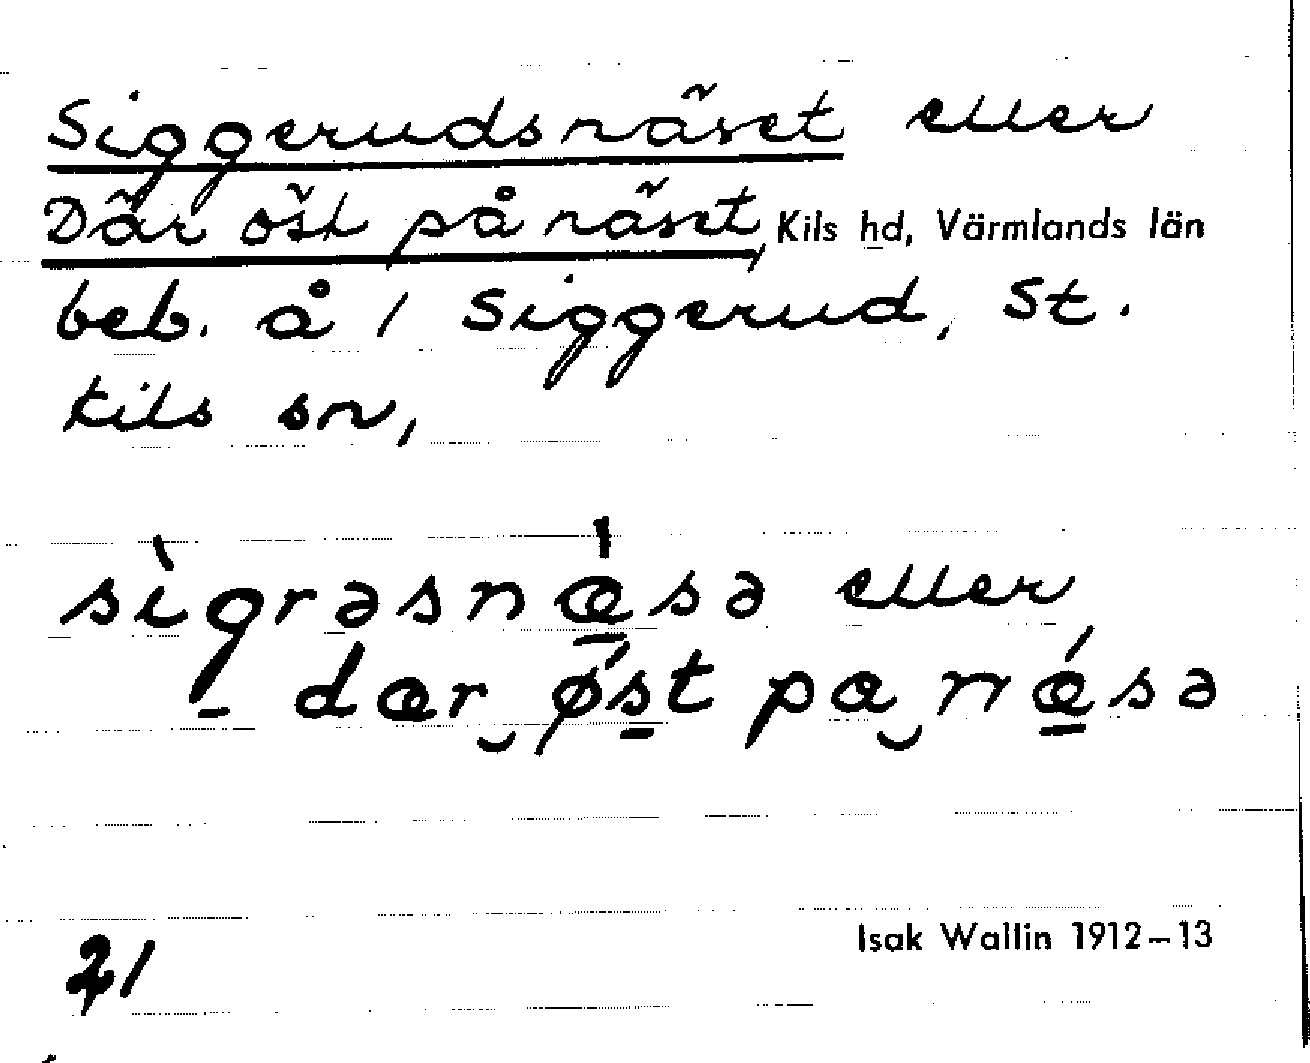 Siggerudsnäset eller
Där öst på näset, Kils hd, Värmlands län
beb. å / Siggerud, St.
Kils sn,
sìgrəsnæ̀sə eller
dær øśt pa nǽsə
Isak Wallin 1912–13
21